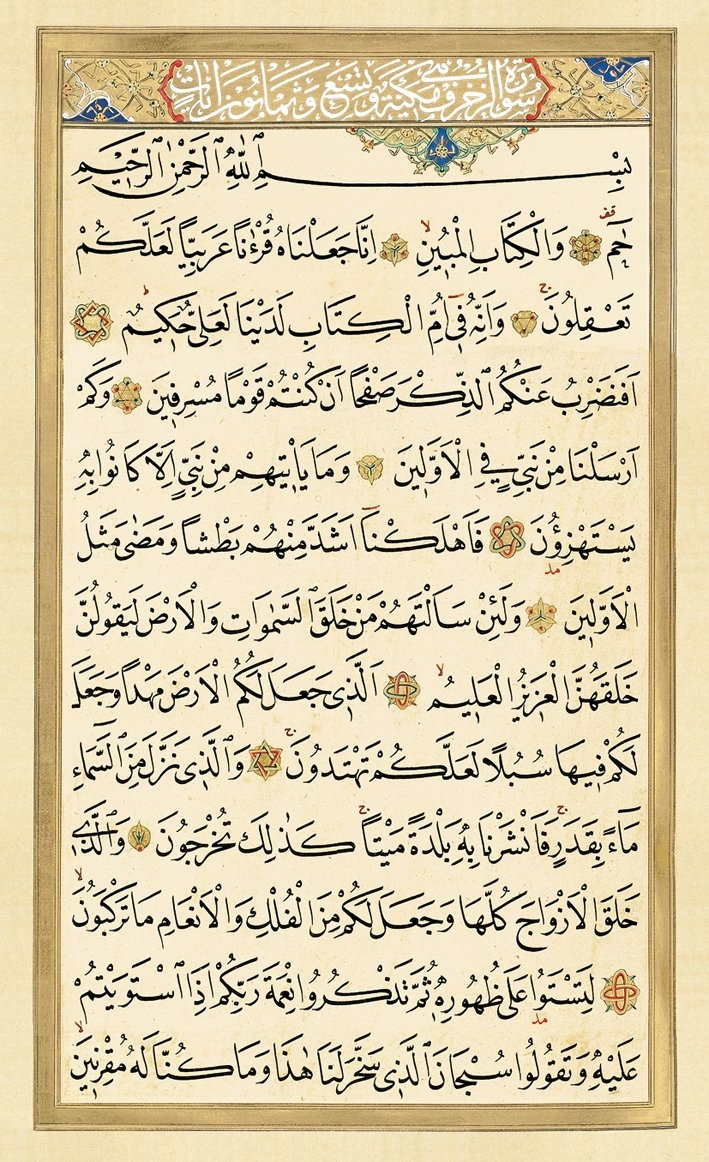 سورة الزخرف مكية وتسع وثمانون آيات
بِسْمِ اللّٰهِ الرَّحْمٰنِ الرَّحِيمِ
حٰمٓ قف وَالْكِتَابِ الْمُبِينِ لا اِنَّا جَعَلْنَاهُ قُرْءٰنًا عَرَبِيًّا لَعَلَّكُمْ
تَعْقِلُونَ ج وَاِنَّهُ فٖٓي اُمِّ الْكِتَابِ لَدَيْنَا لَعَلِيٌّ حَكٖيمٌ ط
اَفَنَضْرِبُ عَنْكُمُ الذِّكْرَ صَفْحًا اَنْ كُنْتُمْ قَوْمًا مُسْرِفٖينَ وَكَمْ
اَرْسَلْنَا مِنْ نَبِيٍّ فِي الْاَوَّلٖينَ وَمَا يَاْتٖيهِمْ مِنْ نَبِيٍّ اِلَّا كَانُوا بِهٖ
يَسْتَهْزِؤُنَ فَاَهْلَكْنَٓا اَشَدَّ مِنْهُمْ بَطْشًا وَمَضٰى مَثَلُ
الْاَوَّلٖينَ وَلَئِنْ سَاَلْتَهُمْ مَنْ خَلَقَ السَّمٰوَاتِ وَالْاَرْضَ لَيَقُولُنَّ
خَلَقَهُنَّ الْعَزٖيزُ الْعَلٖيمُ لا اَلَّذٖي جَعَلَ لَكُمُ الْاَرْضَ مَهْدًا وَجَعَلَ
لَكُمْ فٖيهَا سُبُلًا لَعَلَّكُمْ تَهْتَدُونَ ج وَالَّذٖي نَزَّلَ مِنَ السَّمَٓاءِ
مَٓاءً بِقَدَرٍ ج فَاَنْشَرْنَا بِهٖ بَلْدَةً مَيْتًا ج كَذٰلِكَ تُخْرَجُونَ وَالَّذٖي
خَلَقَ الْاَزْوَاجَ كُلَّهَا وَجَعَلَ لَكُمْ مِنَ الْفُلْكِ وَالْاَنْعَامِ مَا تَرْكَبُونَ لا
لِتَسْتَوُا عَلٰى ظُهُورِهٖ ثُمَّ تَذْكُرُوا نِعْمَةَ رَبِّكُمْ اِذَا اسْتَوَيْتُمْ
عَلَيْهِ وَتَقُولُوا سُبْحَانَ الَّذٖي سَخَّرَ لَنَا هٰذَا وَمَا كُنَّا لَهُ مُقْرِنٖينَ لا